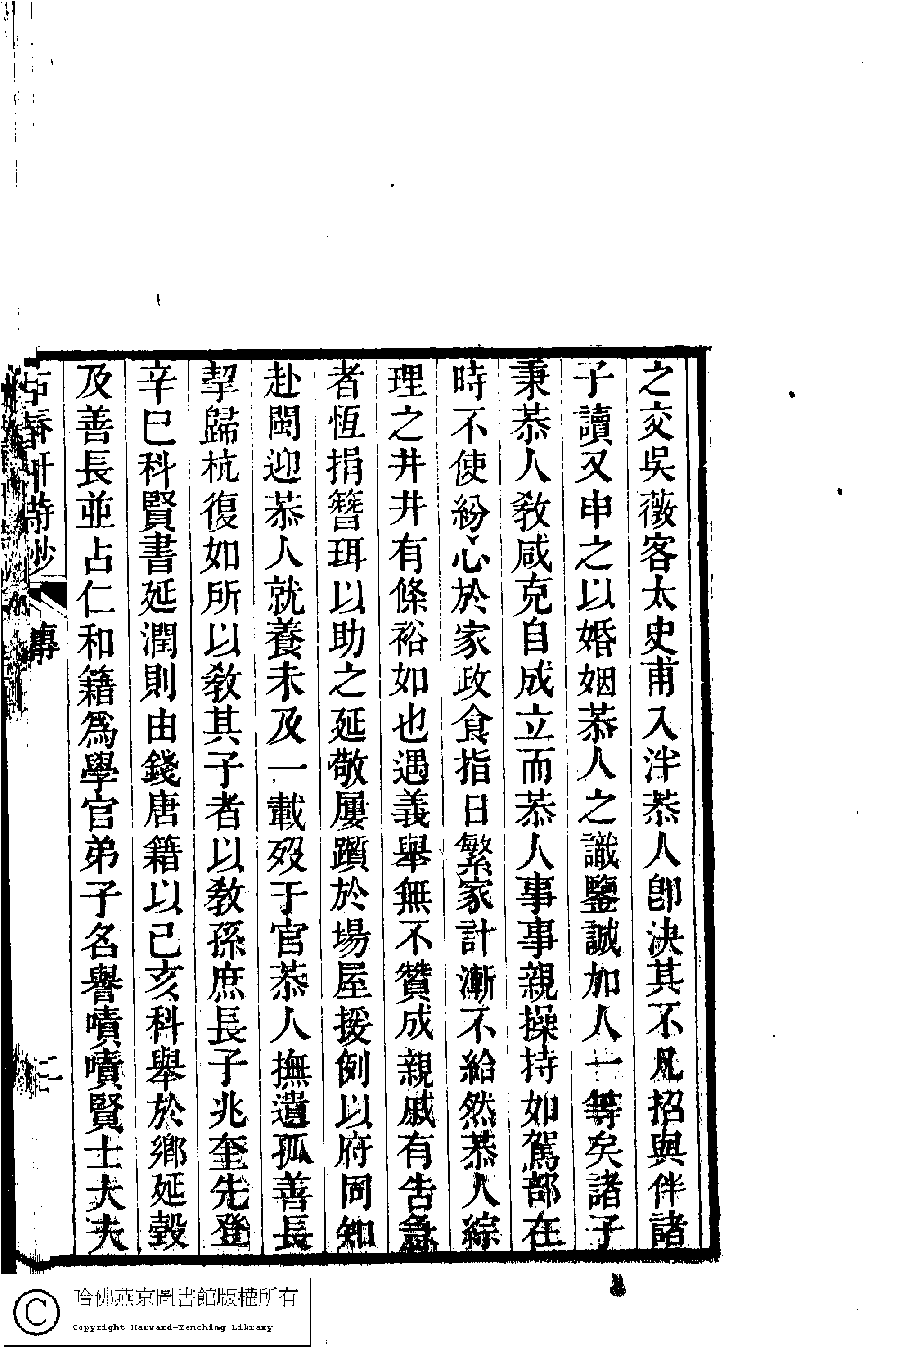 之交吳薇客太史甫入泮恭人卽決其不凡招與伴諸
子讀又申之以婚姻恭人之識鑒誠加人一等矣諸子
秉恭人敎咸克自成立而恭人事事親操持如駕部在
時不使紛心於家政食指日繁家計漸不給然恭人綜
理之井井有條裕如也遇義舉無不贊成親戚有告急
者恆捐簪珥以助之延敬屢躓於場屋援例以府同知
赴閩迎恭人就養未及一載歿于官恭人撫遺孤善長
挈歸杭復如所以敎其子者以敎孫庶長子兆奎先登
辛巳科賢書延潤則由錢唐籍以己亥科舉於鄉延毂
及善長並占仁和籍爲學官弟子名譽嘖嘖賢士大夫
傳
二
哈佛燕京圖書館版權所有
Copyright Harvard-Yenching Library